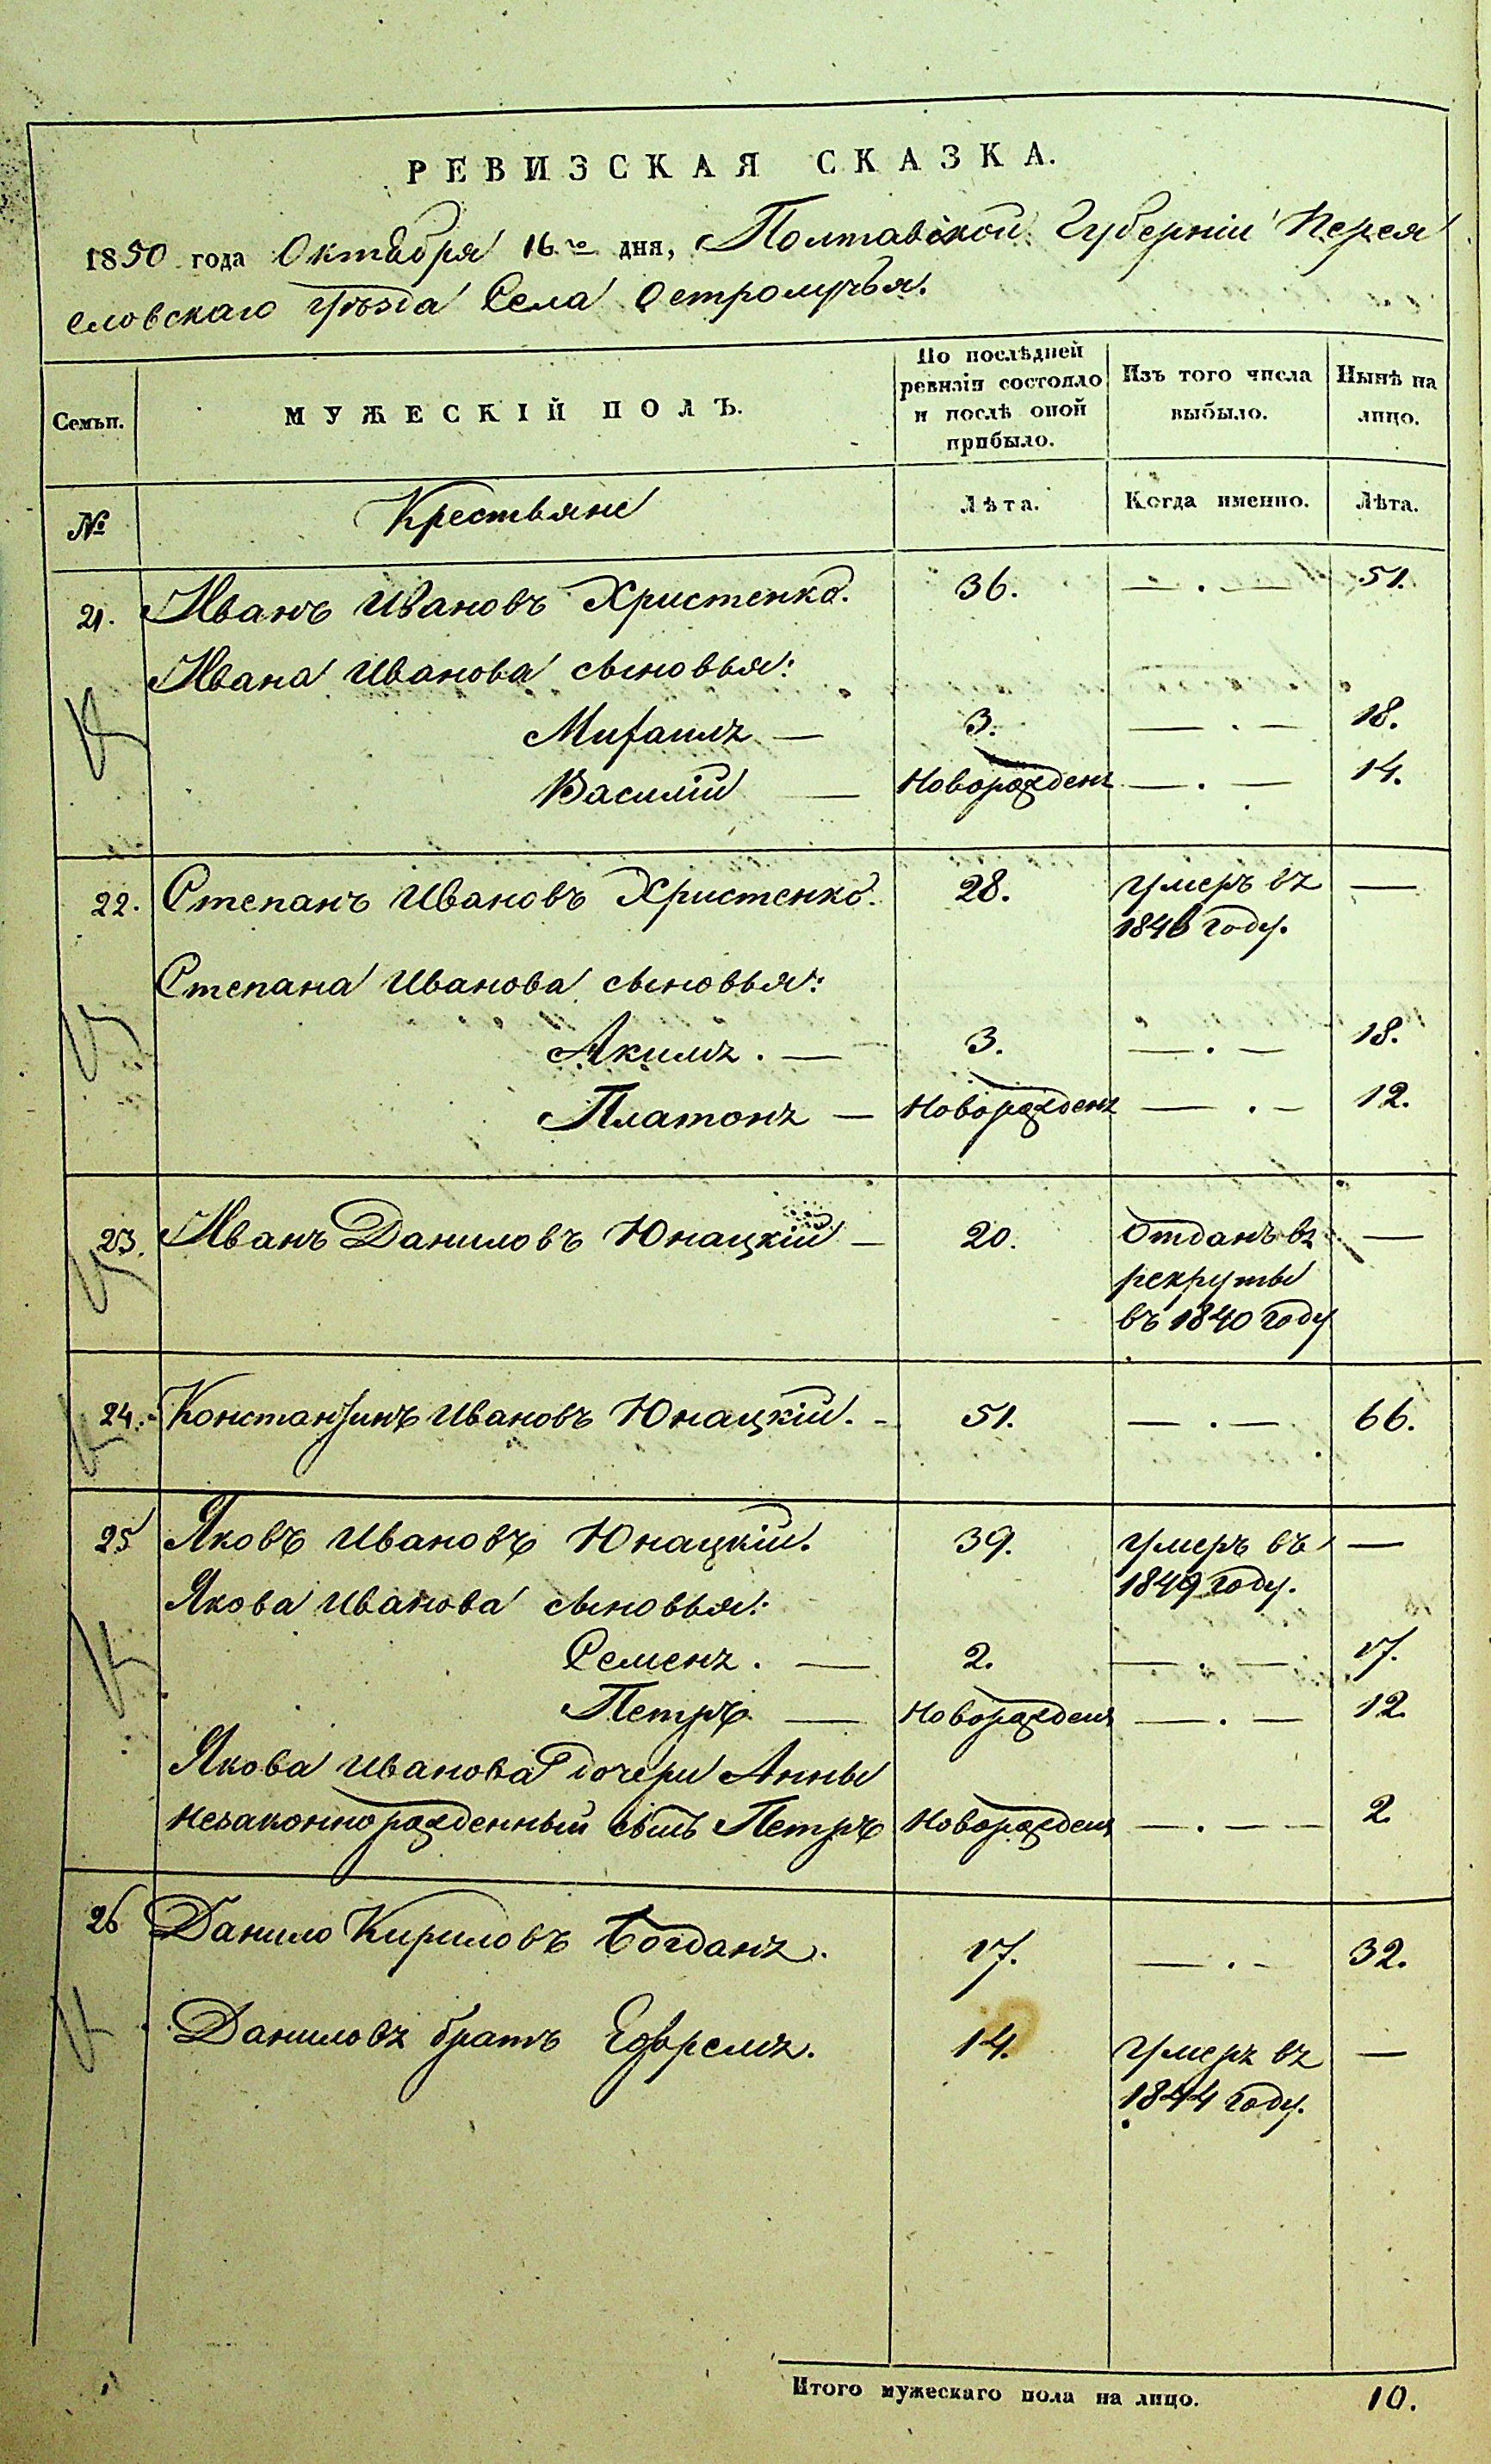 РЕВИЗСКАЯ СКАЗКА.
1850 года Октября 16го дня, Полтавской Губерніи Перея
словскаго уѣзда Села Остролучья.
Семьи.
МУЖЕСКІЙ ПОЛЪ.
По послѣдней ревизіи состояло и послѣ оной прибыло.
Изъ того числа выбыло.
Нынѣ на лицо.
№ Крестьяне Лѣта. Когда именно. Лѣта.
21. Иванъ Ивановъ Христенко. 36. — . — 51.
Ивана Иванова сыновья:
Михаилъ — 3. — . — 18.
Василій — Новорожденъ — . — 14.
22. Степанъ Ивановъ Христенко. 28. умеръ въ —
1846 году.
Степана Иванова сыновья:
Акимъ . — 3. — . — 18.
Платонъ — Новорожденъ — . — 12.
23. Иванъ Даниловъ Юнацкій — 20. Отданъ въ —
рекруты
въ 1840 году
24. Константинъ Ивановъ Юнацкій. - 51. — . — 66.
25 Яковъ Ивановъ Юнацкій. 39. умеръ въ —
1849 году.
Якова Иванова сыновья:
Семенъ . — 2. — . — 17.
Петръ — Новорожденъ — . — 12.
Якова Иванова дочери Анны
незаконнорожденный сынъ Петръ Новорожденъ — . — 2.
26 Данило Кириловъ Богданъ. 17. — . - 32.
Даниловъ братъ Ефремъ. 14. умеръ въ —
1844 году.
Итого мужескаго пола на лицо. 10.